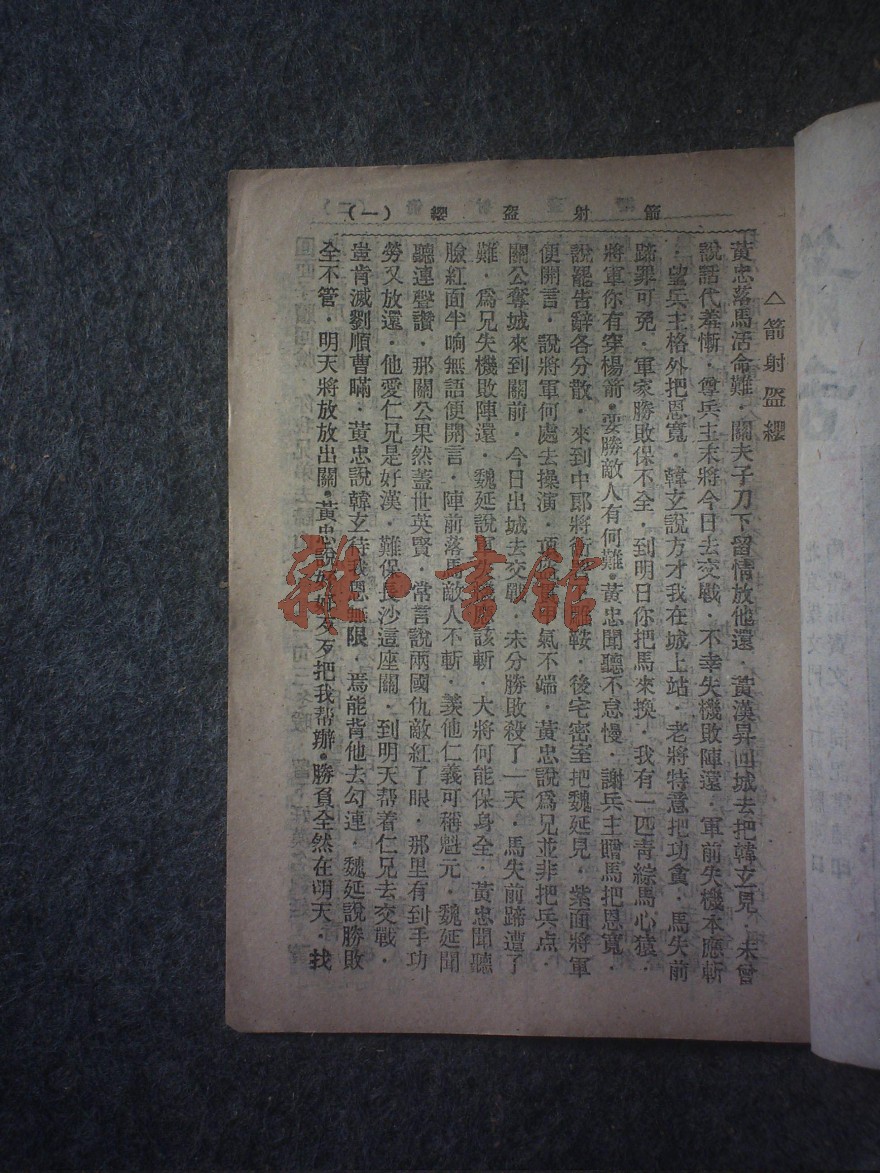 箭射盔纓(一)
△箭射盔纓
黃忠落馬活命難．關夫子刀下留情放他還．黃漢昇回城去把韓玄見．未曾
說話代羞慚．尊兵主末將今日去交戰．不幸失機敗陣還．軍前失機本應斬
．望兵主格外把恩寬．韓玄說方才我在城上站．老將特意把功貪．馬失前
蹄罪可免．軍家勝敗保不全．到明日你把馬來換．我有一匹青綜馬心猿．
將軍你有穿楊箭．要勝敵人有何難．黃忠聞聽不怠慢．謝兵主贈馬把恩寬．
說罷告辭各分散．來到中郎將衙雕鞍．後宅密室把魏延見．紫面將軍
便開言．說將軍何處去操演．氣不端．黃忠說爲兄並非把兵点．
關公奪城來到關前．今日出城去交戰．未分勝敗殺了一天．馬失前蹄遭了
難．爲兄失機敗陣還．魏延說應該斬．大將何能保身全．黃忠聞聽
臉紅面半响無語便開言．陣前落馬敵人不斬．羨他仁義可稱魁元．魏延聞
聽連聲讚．那關公果然蓋世英賢．常言說兩國仇敵紅了眼．那里有到手功
勞又放還．他愛仁兄是好漢．難保長沙這座關．到明天帮着仁兄去交戰．
豈肯滅劉順曹瞞．黃忠說韓玄待我恩無限．焉能背他去勾連．魏延說勝敗
全不管．明天將放放出關．黃忠說好好歹歹把我帮辦．勝負全然在明天．找
雜·書館